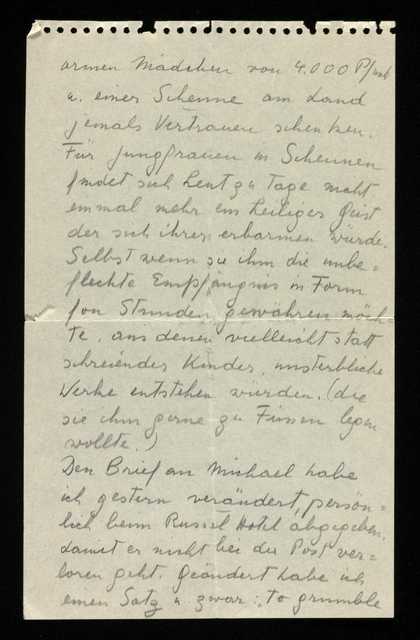 armen Mädchen von 4.000 Pfund
u. einer Scheune am Land
jemals Vertrauen schenken.
Für Jungfrauen in Scheunen
findet sich heut zu Tage nicht
einmal mehr ein heiliger Geist
der sich ihrer erbarmen würde.
Selbst wenn sie ihm die unbe=
fleckte Empfängnis in Form
von Stunden gewähren möch=
te, aus denen vielleicht statt
schreiender Kinder, unsterbliche
Werke entstehen würden. (die
sie ihm gerne zu Füssen legen
wollte.)
Den Brief an Michael habe
ich gestern verändert, persön=
lich beim Russel Hotel abgegeben,
damit er nicht bei der Post ver=
loren geht. Geändert habe ich
einen Satz u. zwar: "to grumble